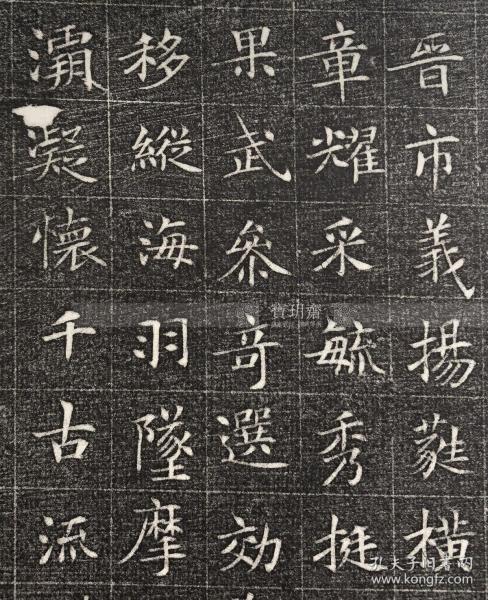 晋市義揚蕤橫
章耀采毓秀挺
果武叅竒選効
移縱海羽墜摩
凝懷千古流
寶玥齋
孔夫子旧书网
www.kongfz.com